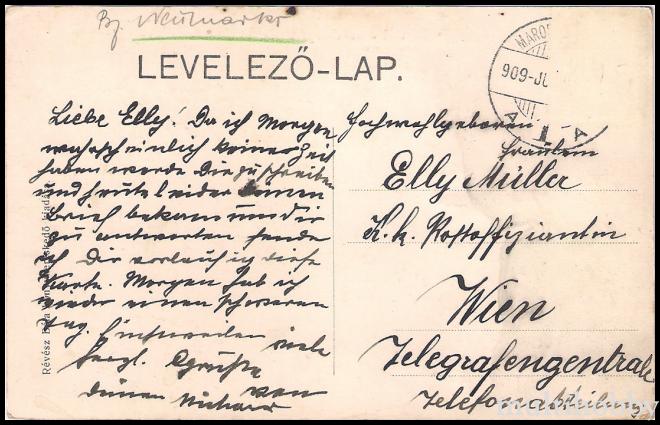 Bz. Neumarkt
LEVELEZŐ-LAP.
MAROS
909-JU
Liebe Elly! Da ich Morgen
wahrscheinlich keine Zeit
haben werde Dir zu schreiben
und heute leider keinen
Brief bekam um Dir
zu antworten sende
ich Dir vorläufig diese
Karte. Morgen hab ich
wieder einen schweren
Tag. Einstweilen viele
herzl. Grüße
von
Deinem
Hochwohlgeboren
Fräulein
Elly Müller
K. k. Postoffiziantin
Wien
Telegrafenzentrale
Telefonabteilung
Révész Béla
kiadása